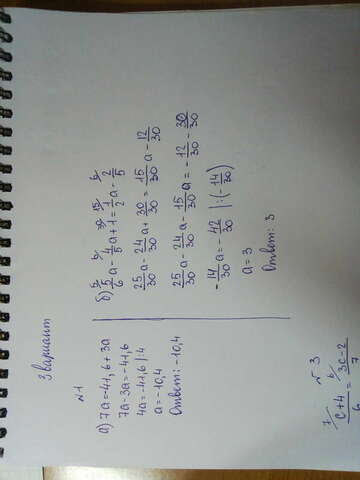 3 вариант
№1
а) 7a = -41,6 + 3a
7a - 3a = -41,6
4a = -41,6 | :4
a = -10,4
Ответ: -10,4
б) 5/6 a - 4/5 a + 1 = 1/2 a - 2/5
25/30 a - 24/30 a + 30/30 = 15/30 a - 12/30
25/30 a - 24/30 a - 15/30 a = - 12/30 - 30/30
- 14/30 a = - 42/30 | : (- 14/30)
a = 3
Ответ: 3
№ 3
c+4/6 = 3c-2/7